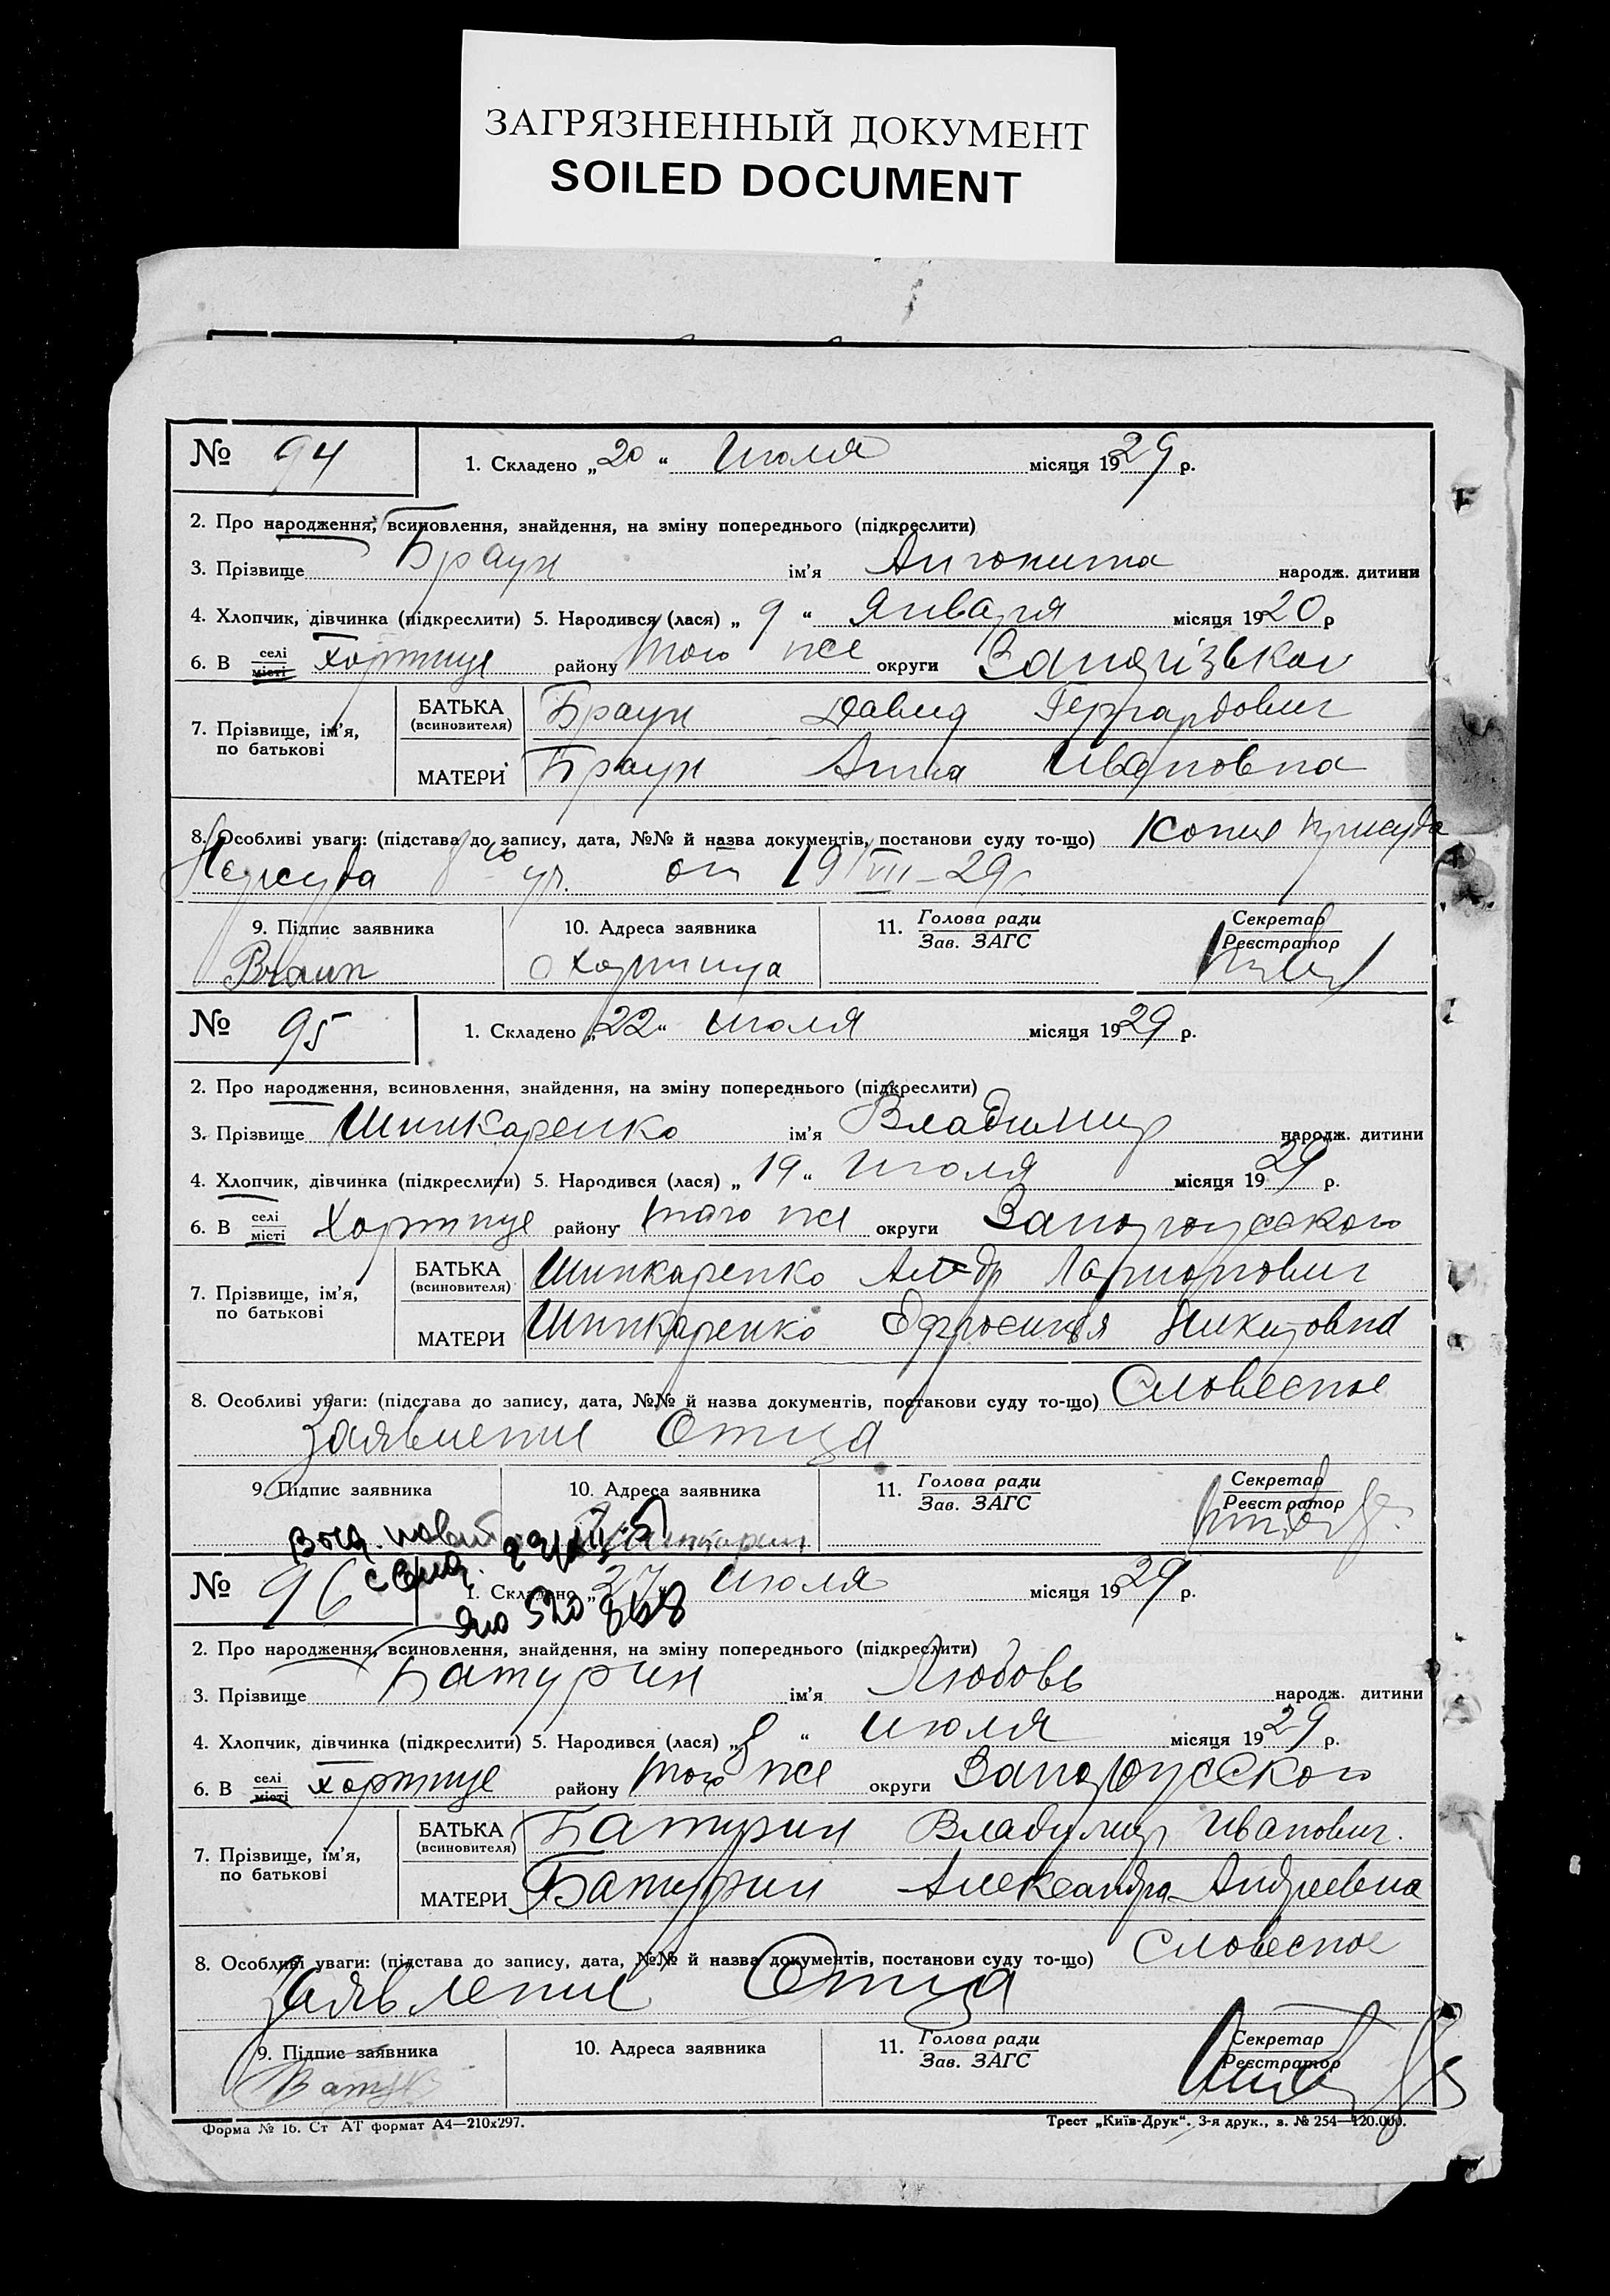 ЗАГРЯЗНЕННЫЙ ДОКУМЕНТ
SOILED DOCUMENT
№ 94
1. Складено „20“ Июля місяця 1929 р.
2. Про народження, всиновлення, знайдення, на зміну попереднього (підкреслити)
3. Прізвище Браун ім'я народж. дитини
4. Хлопчик, дівчинка (підкреслити) 5. Народився (лася) „9“ Января місяця 1920 р
6. В селі місті Хортице району того же округи
7. Прізвище, ім'я, по батькові
БАТЬКА (всиновителя) Браун Давид Гергардович
МАТЕРИ Браун Анна Ивановна
8. Особливі уваги: (підстава до запису, дата, №№ й назва документів, постанови суду то-що) Копия
Нарсуда уч. от 19/VII-29г
9. Підпис заявника
10. Адреса заявника
11. Голова ради Зав. ЗАГС
Секретар Реєстратор
Braun Хортица
№ 95
1. Складено „22“ июля місяця 1929 р.
2. Про народження, всиновлення, знайдення, на зміну попереднього (підкреслити)
3. Прізвище Шинкаренко ім'я Владимир народж. дитини
4. Хлопчик, дівчинка (підкреслити) 5. Народився (лася) „19“ Июля місяця 1929 р.
6. В селі місті Хортице району того же округи Запорожского
7. Прізвище, ім'я, по батькові
БАТЬКА (всиновителя) Шинкаренко Ал-др Ларионович
МАТЕРИ Шинкаренко Ефросиния Никитовна
8. Особливі уваги: (підстава до запису, дата, №№ й назва документів, постанови суду то-що) Словесное
Заявление Отца
9. Підпис заявника
10. Адреса заявника
11. Голова ради Зав. ЗАГС
Секретар Реєстратор
№ 96
1. Складено „27“ Июля місяця 1929 р.
2. Про народження, всиновлення, знайдення, на зміну попереднього (підкреслити)
3. Прізвище Батурин ім'я Любовь народж. дитини
4. Хлопчик, дівчинка (підкреслити) 5. Народився (лася) „8“ Июля місяця 1929 р.
6. В селі місті Хортице району того же округи Запорожского
7. Прізвище, ім'я, по батькові
БАТЬКА (всиновителя) Батурин Владимир Иванович.
МАТЕРИ Батурин Александра Андреевна
8. Особливі уваги: (підстава до запису, дата, №№ й назва документів, постанови суду то-що) Словесное
Заявление Отца
9. Підпис заявника
10. Адреса заявника
11. Голова ради Зав. ЗАГС
Секретар Реєстратор
Форма № 16. Ст АТ формат А4—210х297.
Трест „Київ-Друк“. 3-я друк., з. № 254—120.000.